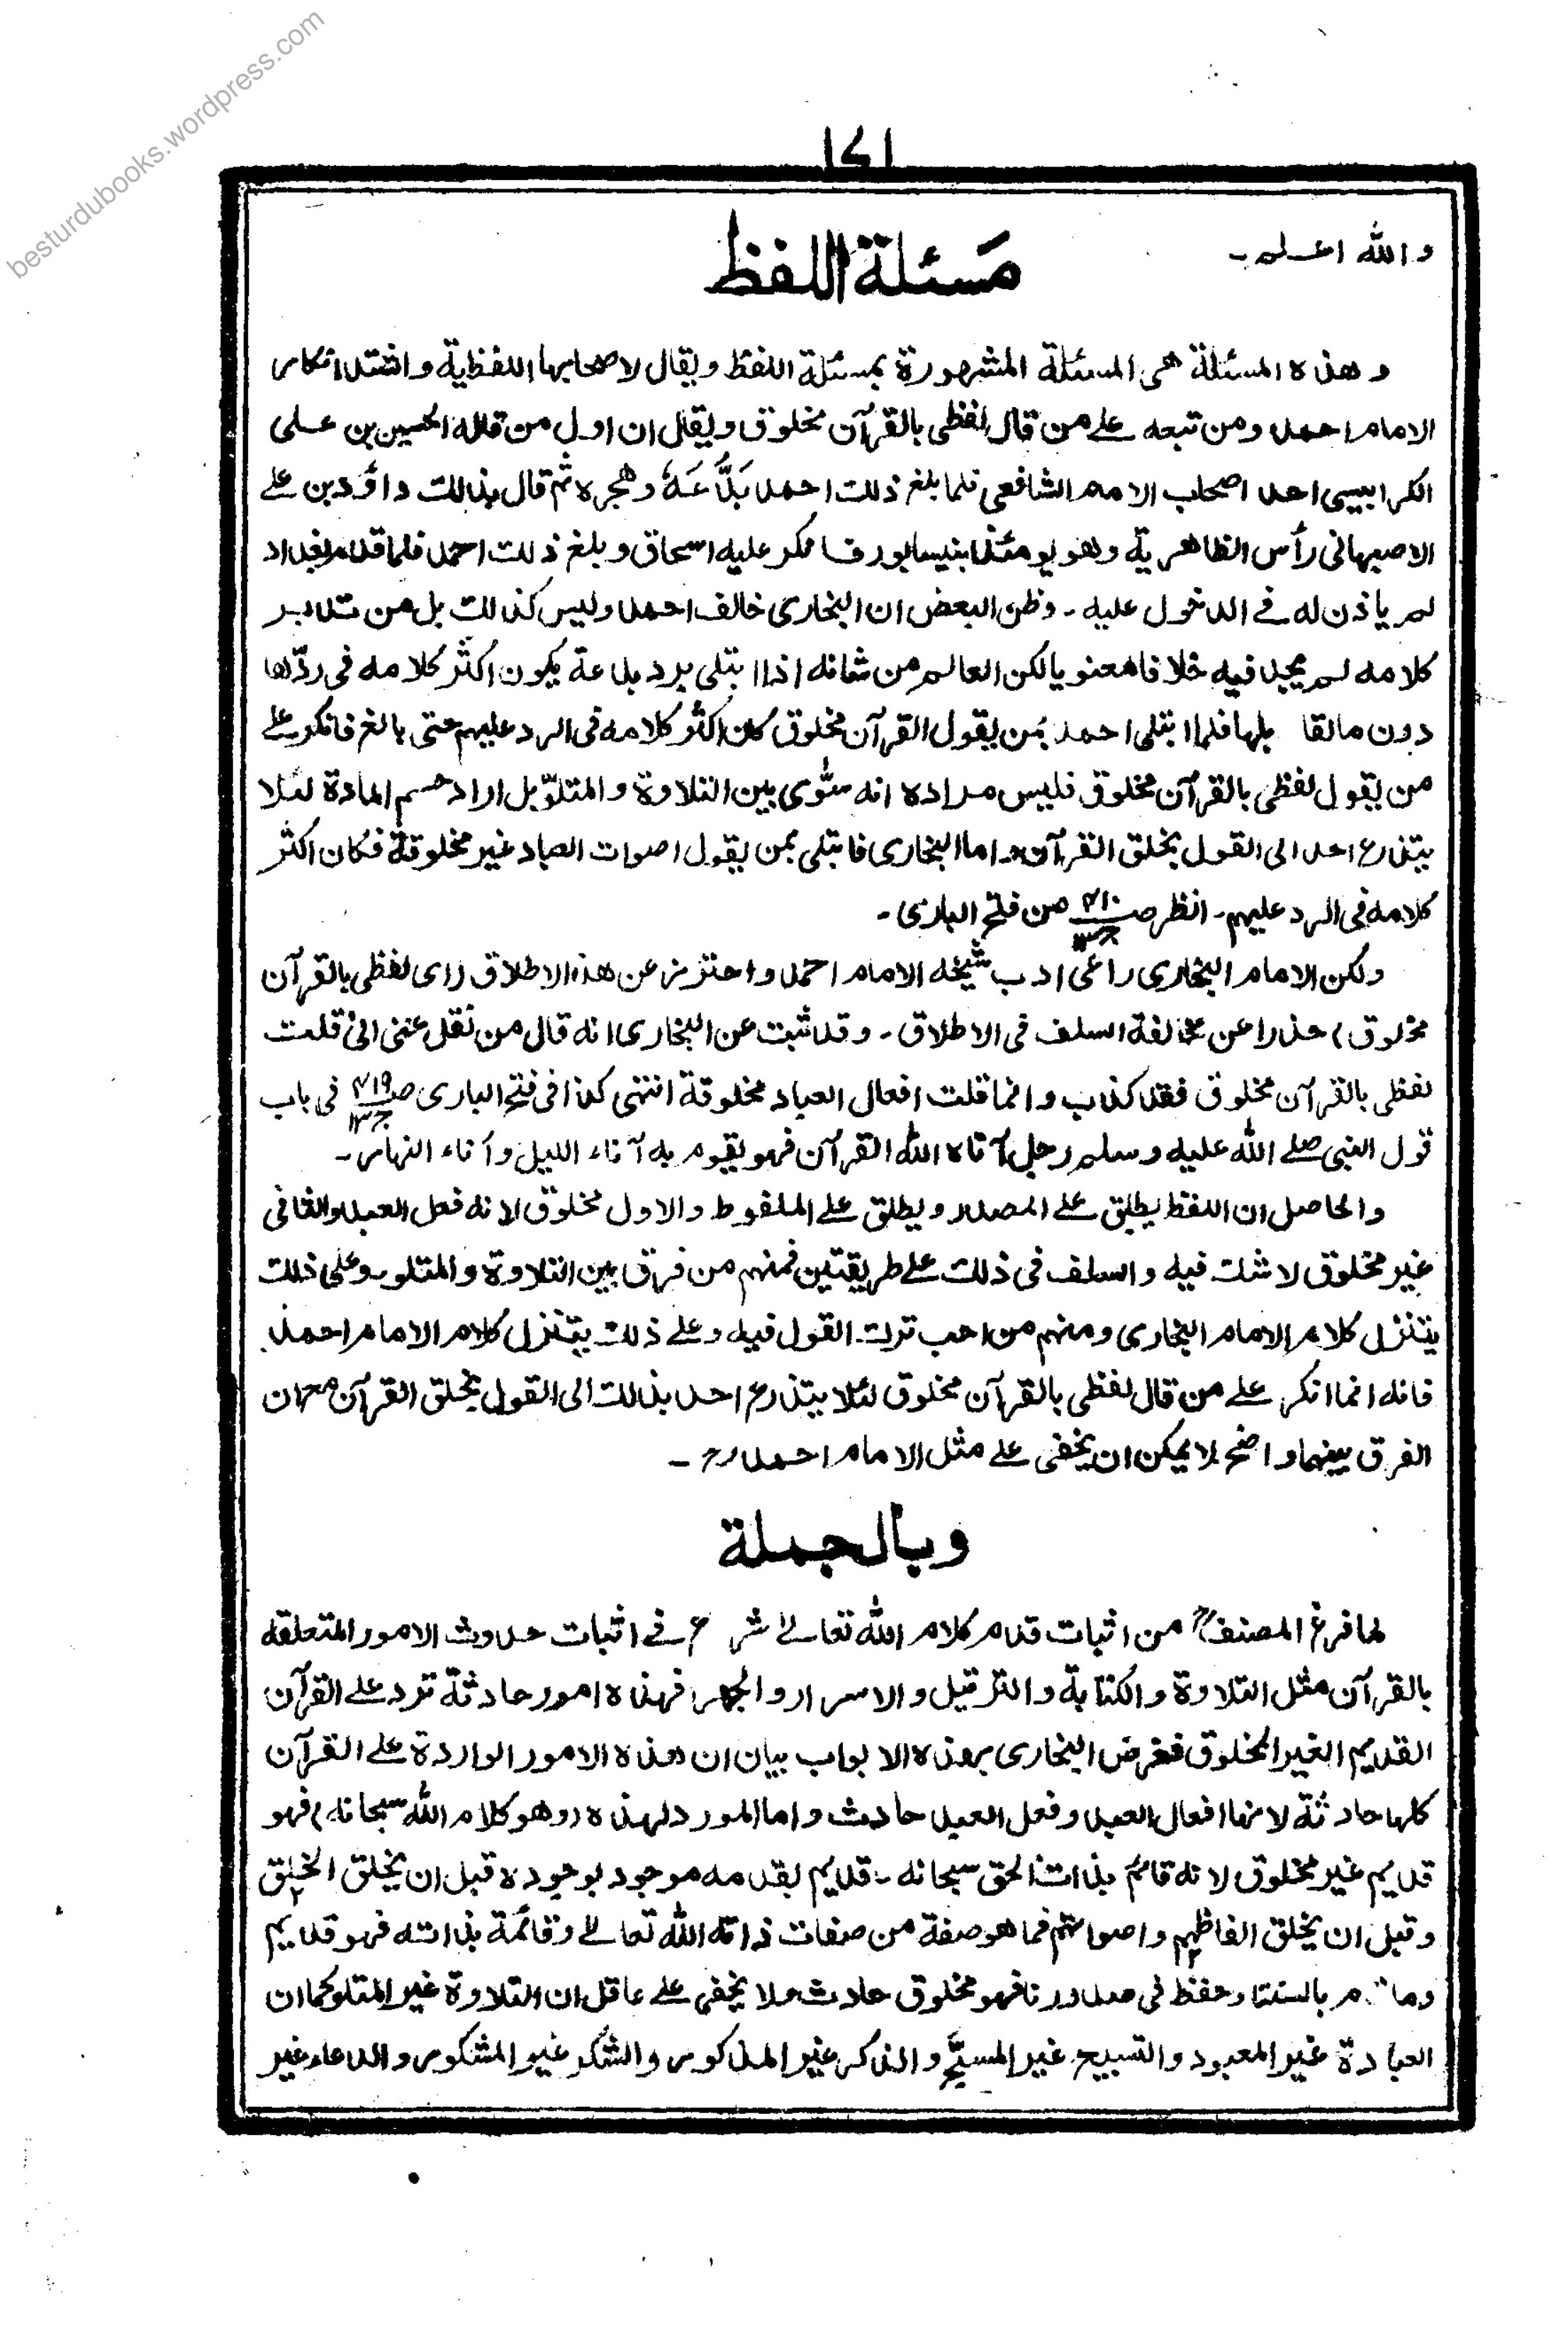 besturdubooks.wordpress.com
۱۷۱
والله اعلم۔
مسئلة اللفظ
وهذه المسئلة هى المسئلة المشهورة بمسئلة اللفظ ويقال لاصحابها اللفظية واشتد انكار
الامام احمد ومن تبعه على من قال لفظى بالقرآن مخلوق ويقال ان اول من قاله الحسين بن على
الكرابيسى احد اصحاب الامام الشافعى فلما بلغ ذلك احمد بَدَّعَهٗ وهجره ثم قال بذالك داؤد بن على
الاصبهانى رأس الظاهرية وهو يومئذ بنيسابور فانكر عليه اسحاق وبلغ ذلك احمد فلما قدم بغداد
لم ياذن له فى الدخول عليه۔ وظن البعض ان البخارى خالف احمد وليس كذالك بل من تدبر
كلامه لم يجد فيه خلافا معنويا لكن العالم من شانه اذا ابتلى برد بدعة يكون اكثر كلامه فى ردّها
دون ما لقا بلها فلما ابتلى احمد بمن يقول القرآن مخلوق كان اكثر كلامه فى الرد عليهم حتى بالغ فانكر على
من يقول لفظى بالقرآن مخلوق فليس مراده انه سوّى بين التلاوة والمتلوّ بل اراد حسم المادة لئلا
يتذرع احد الى القول بخلق القرآن واما البخارى فابتلى بمن يقول اصوات العباد غير مخلوقة فكان اكثر
كلامه فى الرد عليهم۔ انظر صـ۴۱۰ ج۱۳ من فتح البارى۔
ولكن الامام البخارى راعىٰ ادب شيخه الامام احمد واحترز عن هذا الاطلاق (اى لفظى بالقرآن
مخلوق) حذرا عن مخالفة السلف فى الاطلاق۔ وقد ثبت عن البخارى انه قال من نقل عنى انى قلت
لفظى بالقرآن مخلوق فقد كذب وانما قلت افعال العباد مخلوقة انتهى كذا فى فتح البارى صـ۴۱۹ ج۱۳ فى باب
قول النبى صلى الله عليه وسلم رجل آتاه الله القرآن فهو يقوم به آناء الليل وآناء النهار۔
والحاصل ان اللفظ يطلق على المصدر ويطلق على الملفوظ والاول مخلوق لانه فعل العبد والثانى
غير مخلوق لا شك فيه والسلف فى ذلك على طريقتين فمنهم من فرق بين التلاوة والمتلو۔ وعلى ذلك
يتنزل كلام الامام البخارى ومنهم من احب ترك القول فيه وعلى ذلك يتنزل كلام الامام احمد
فانه انما انكر على من قال لفظى بالقرآن مخلوق لئلا يتذرع احد بذالك الى القول بخلق القرآن مع ان
الفرق بينهما واضح لا يمكن ان يخفى على مثل الامام احمد رح۔
وبالجملة
لما فرغ المصنف رح من اثبات قدم كلام الله تعالىٰ شرع فى اثبات حدوث الامور المتعلقه
بالقرآن مثل التلاوة والكتابة والترتيل والاسرار والجهر فهذه امور حادثة ترد على القرآن
القديم الغير المخلوق فغرض البخارى بهذه الابواب بيان ان هذه الامور الواردة على القرآن
كلها حادثة لانها افعال العبد وفعل العبد حادث واما المورد لهذه (وهو كلام الله سبحانه) فهو
قديم غير مخلوق لانه قائم بذات الحق سبحانه۔ قديم بقدمه موجود بوجوده قبل ان يخلق الخلق
وقبل ان يخلق الفاظهم واصواتهم فما هو صفة من صفات ذاته الله تعالىٰ وقائمة بذاته فهو قديم
وما م بالسنتنا وحفظ فى صدورنا فهو مخلوق حادث ولا يخفى على عاقل ان التلاوة غير المتلو كما ان
العبادة غير المعبود والتسبيح غير المسبَّح والذكر غير المذكور والشكر غير المشكور والدعاء غير